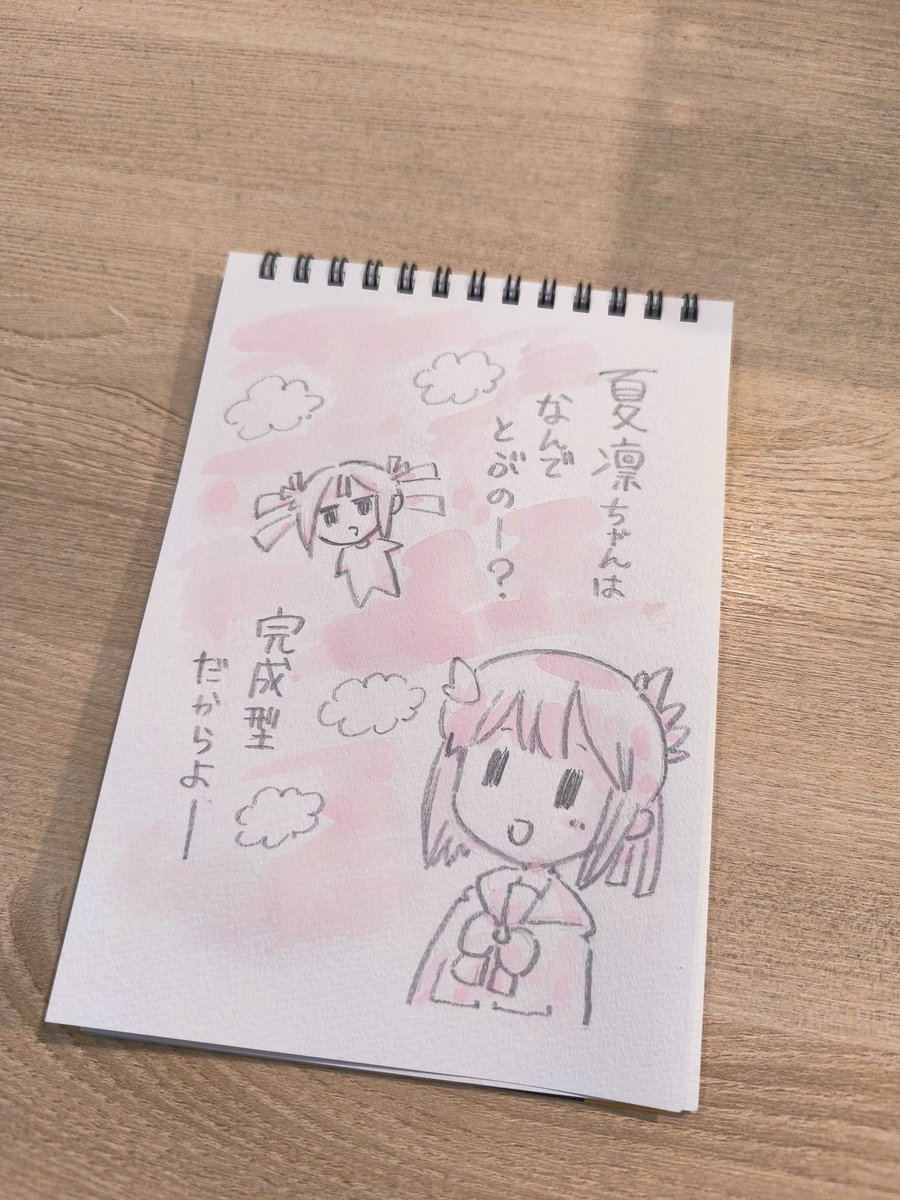 夏凛ちゃんは
なんで
とぶのー？
完成型
だからよー